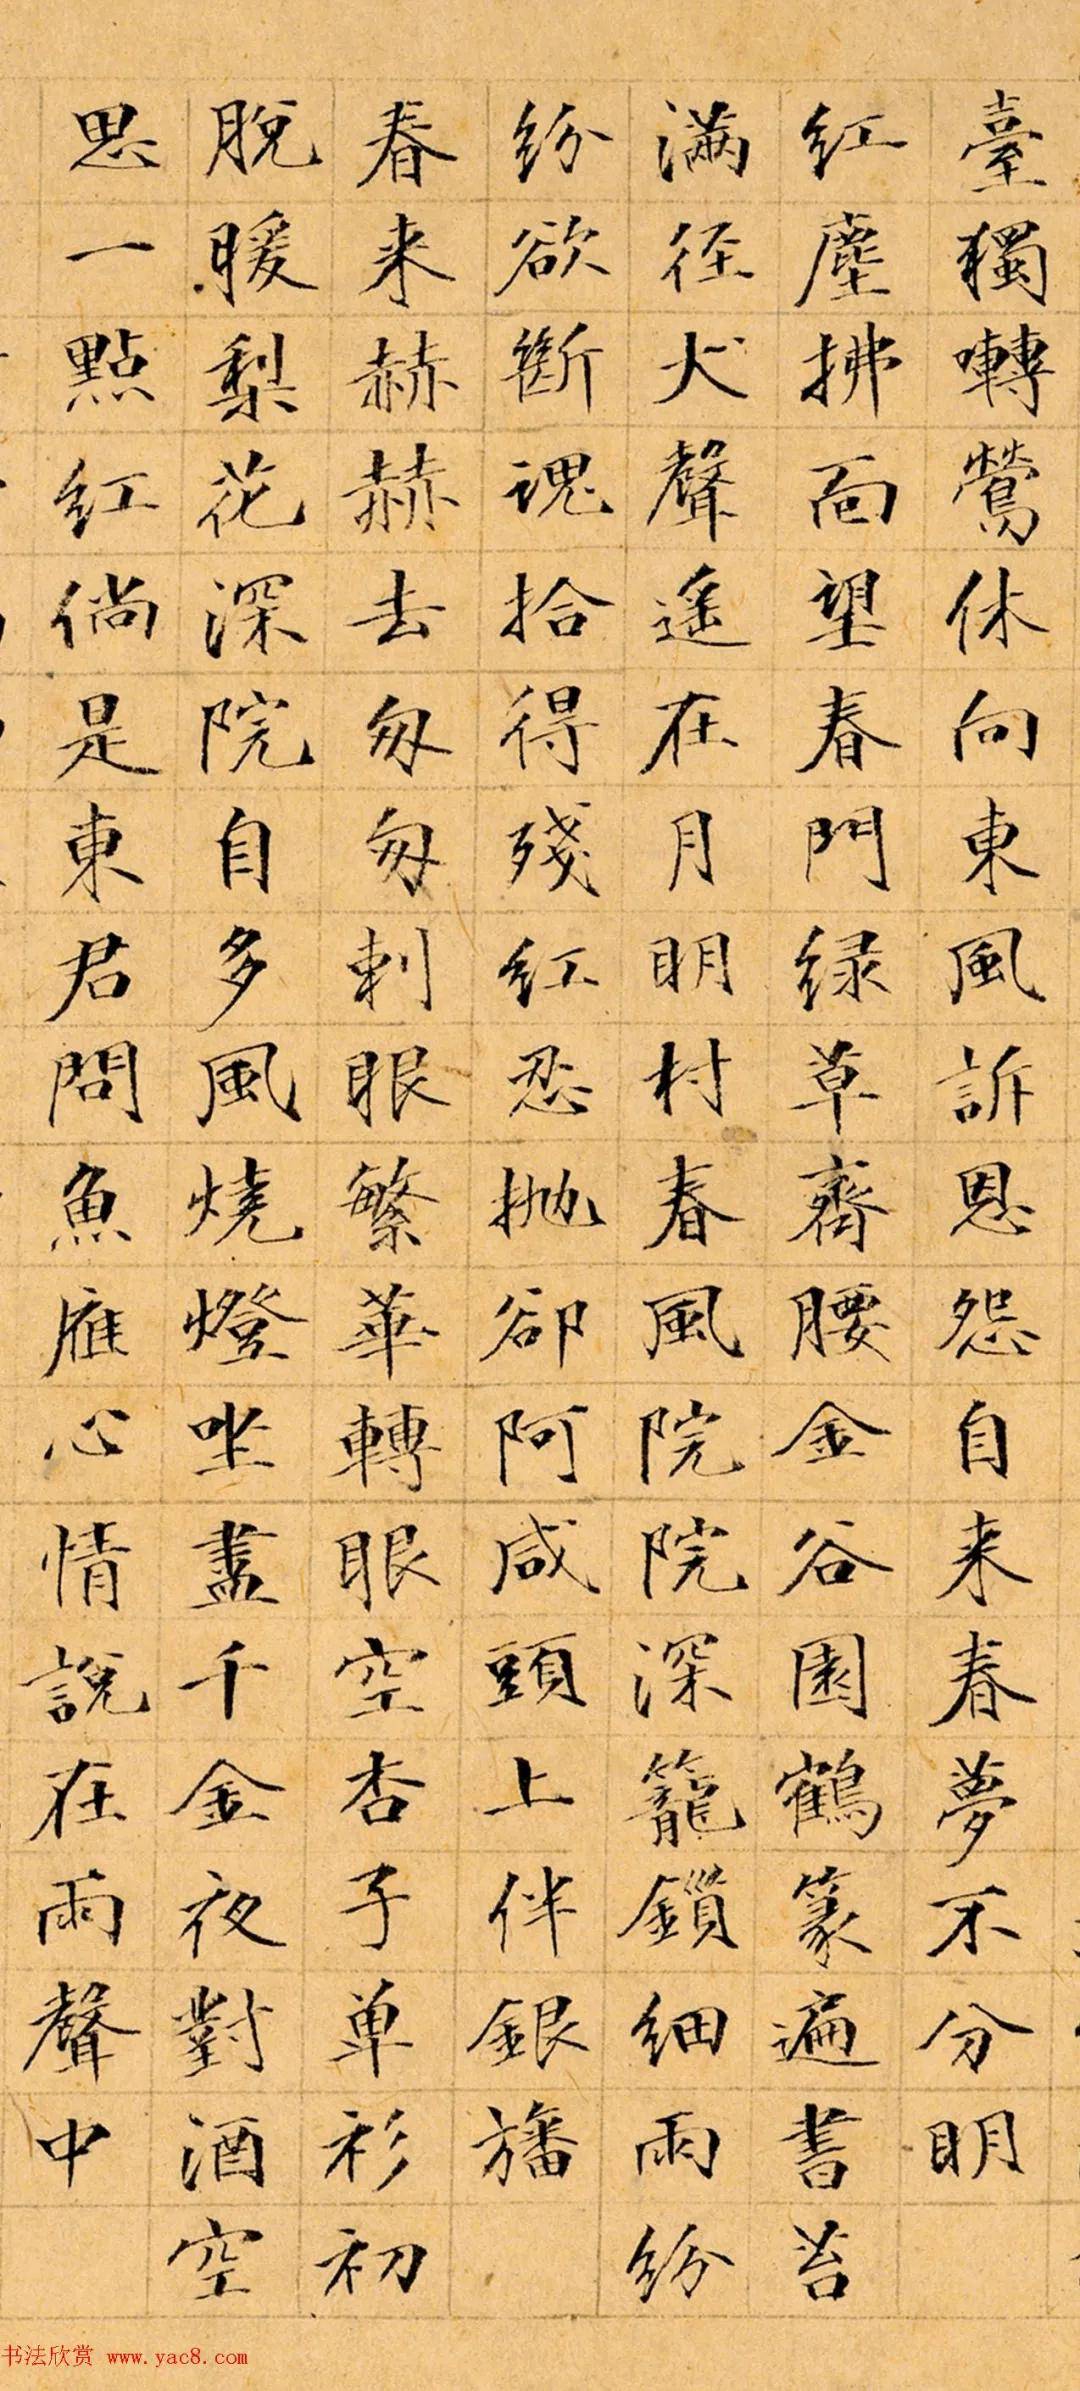 臺獨囀鶯休向東風訴恩怨自来春夢不分明
红塵拂面望春門绿草齊腰金谷園鶴篆遍書苔
满径犬聲遥在月明村春風院院深籠鎖细雨纷
纷欲斷魂拾得殘红忍抛卻阿咸頭上伴銀旛
春来赫赫去匆匆刺眼繁華轉眼空杏子单衫初
脫暖梨花深院自多風燒燈坐盡千金夜對酒空
思一點红倘是東君問魚雁心情說在雨聲中
书法欣赏 www.yac8.com